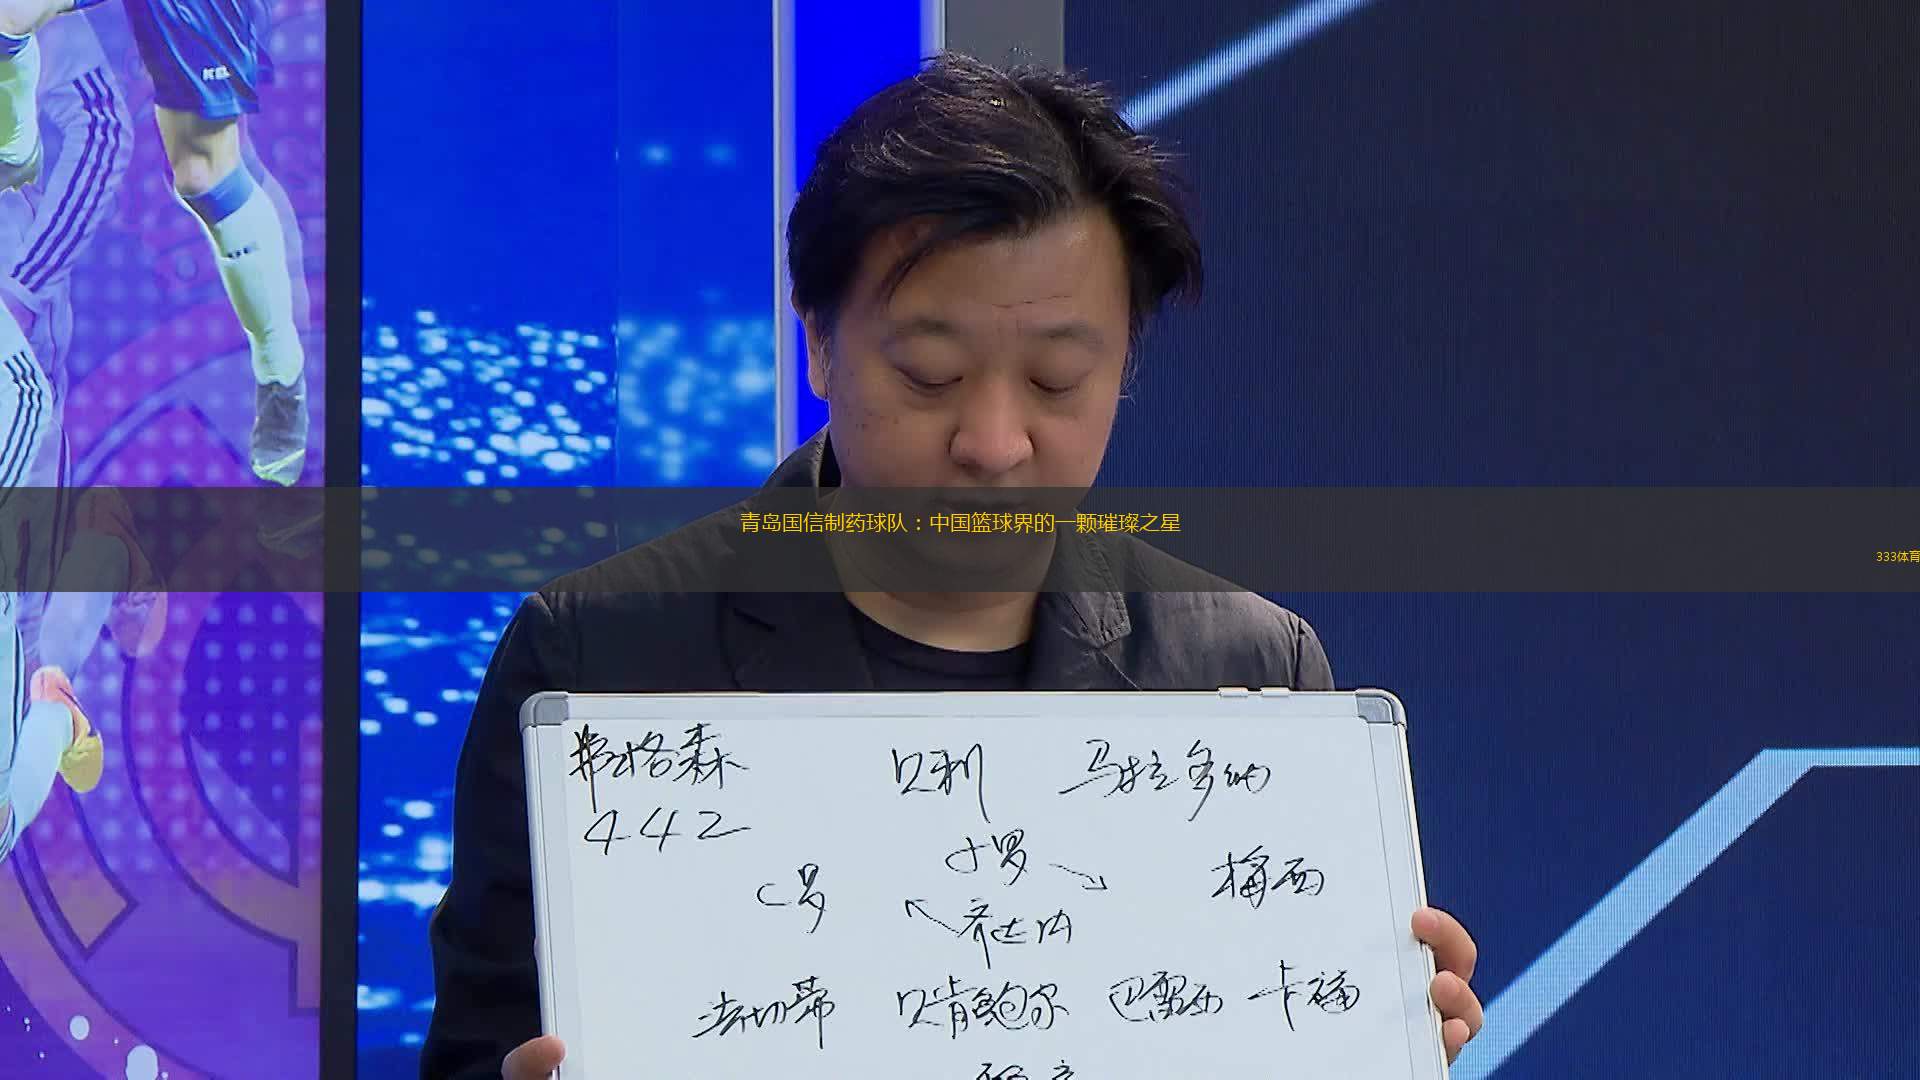 青岛国信制药球队：中国篮球界的一颗璀璨之星
333体育
弗格森 贝利 马拉多纳
442
小罗
C罗 梅西
齐达内
法切蒂 贝肯鲍尔 巴雷西 卡福